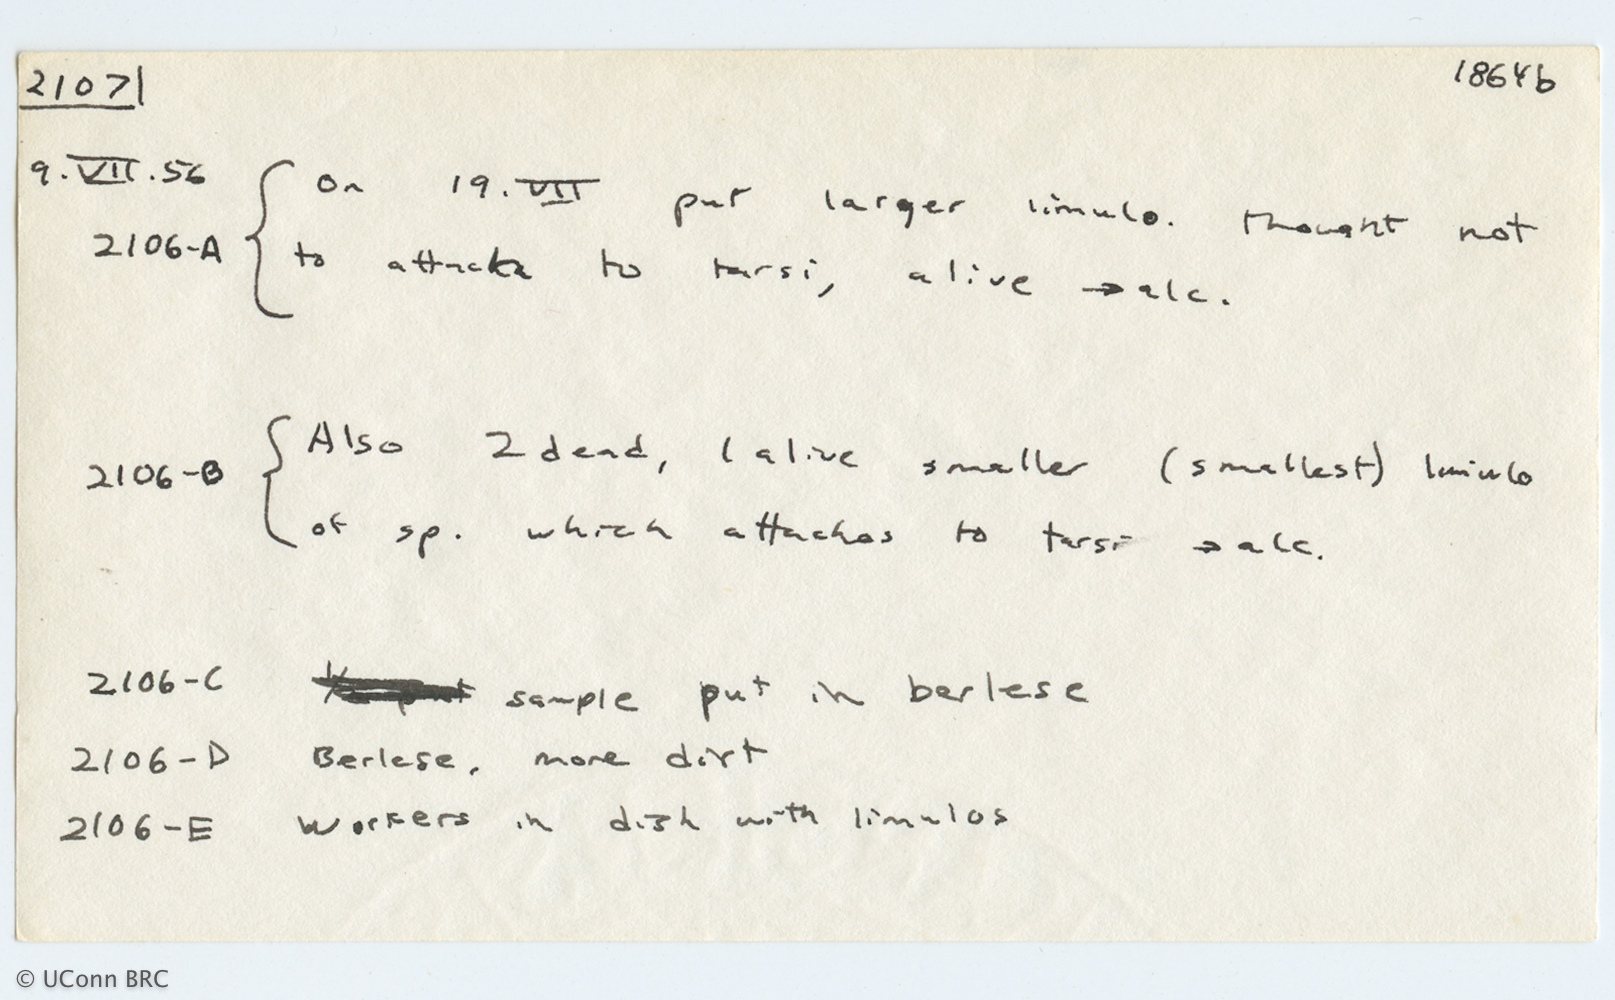 2107 1864b
9.VII.56 On 19.VII put larger limulo. thought not
2106-A to attack to tarsi, alive → alc.
2106-B Also 2 dead, 1 alive smaller (smallest) limulo
of sp. which attaches to tarsi → alc.
2106-C sample put in berlese
2106-D Berlese, more dirt
2106-E Workers in dish with limulos
© UConn BRC